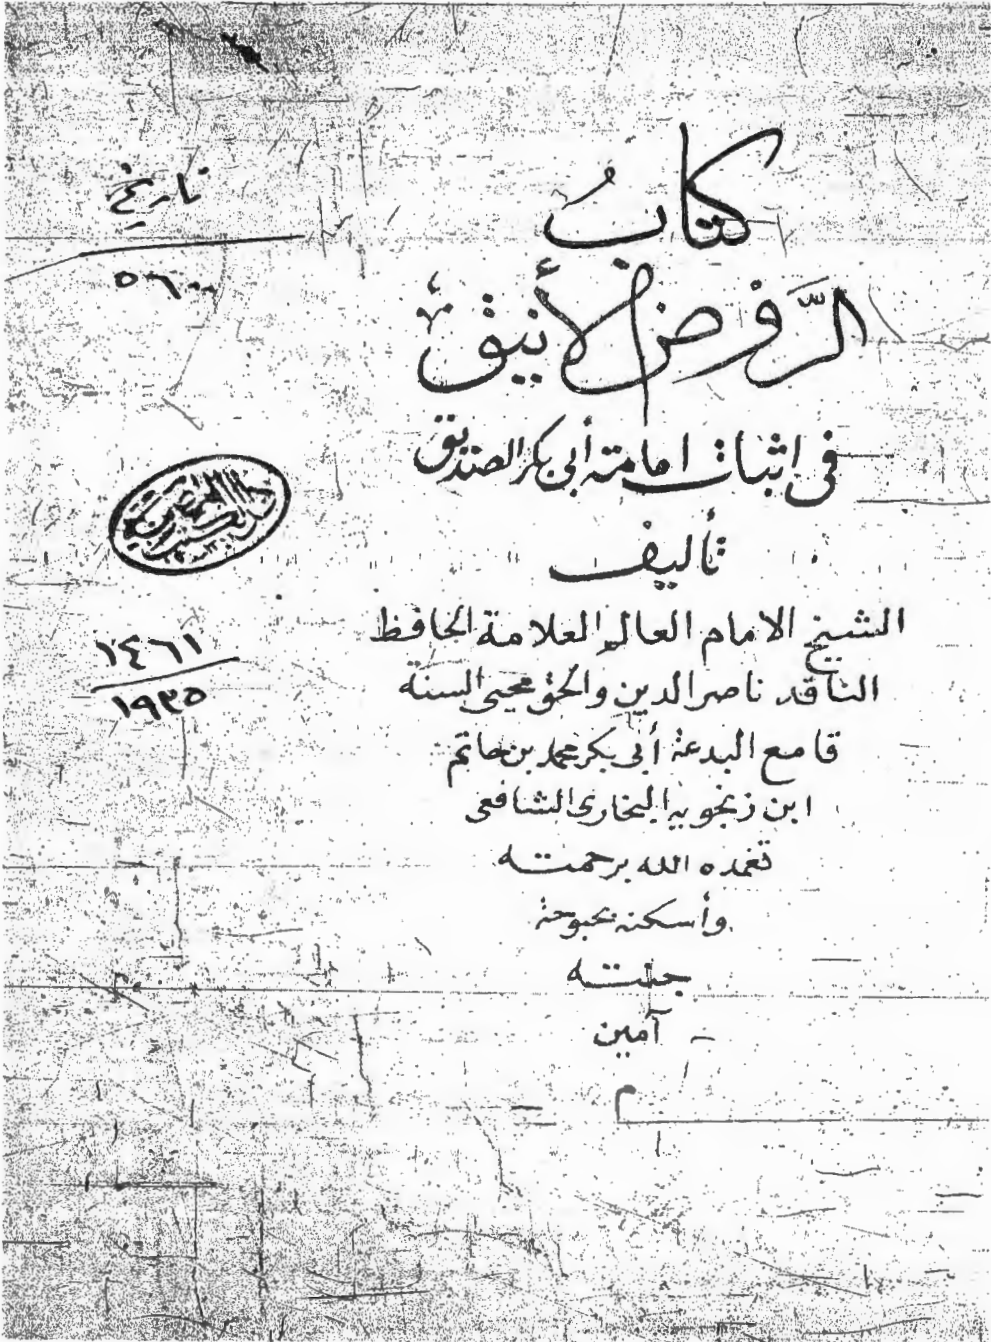 كتابُ
الرَّوض الأنيق
في اثبات امامته أبي بكر الصديق
تأليف
الشيخ الامام العالم العلامة الحافظ
الناقد ناصر الدين والحق محيي السنة
قامع البدعة أبي بكر محمد بن حاتم
ابن زنجويه البخاري الشافعي
تغمده الله برحمته
وأسكنه بحبوحة
جنته
آمين
م
تاريخ
٥٦٠٠
١٤٦١
١٩٣٥